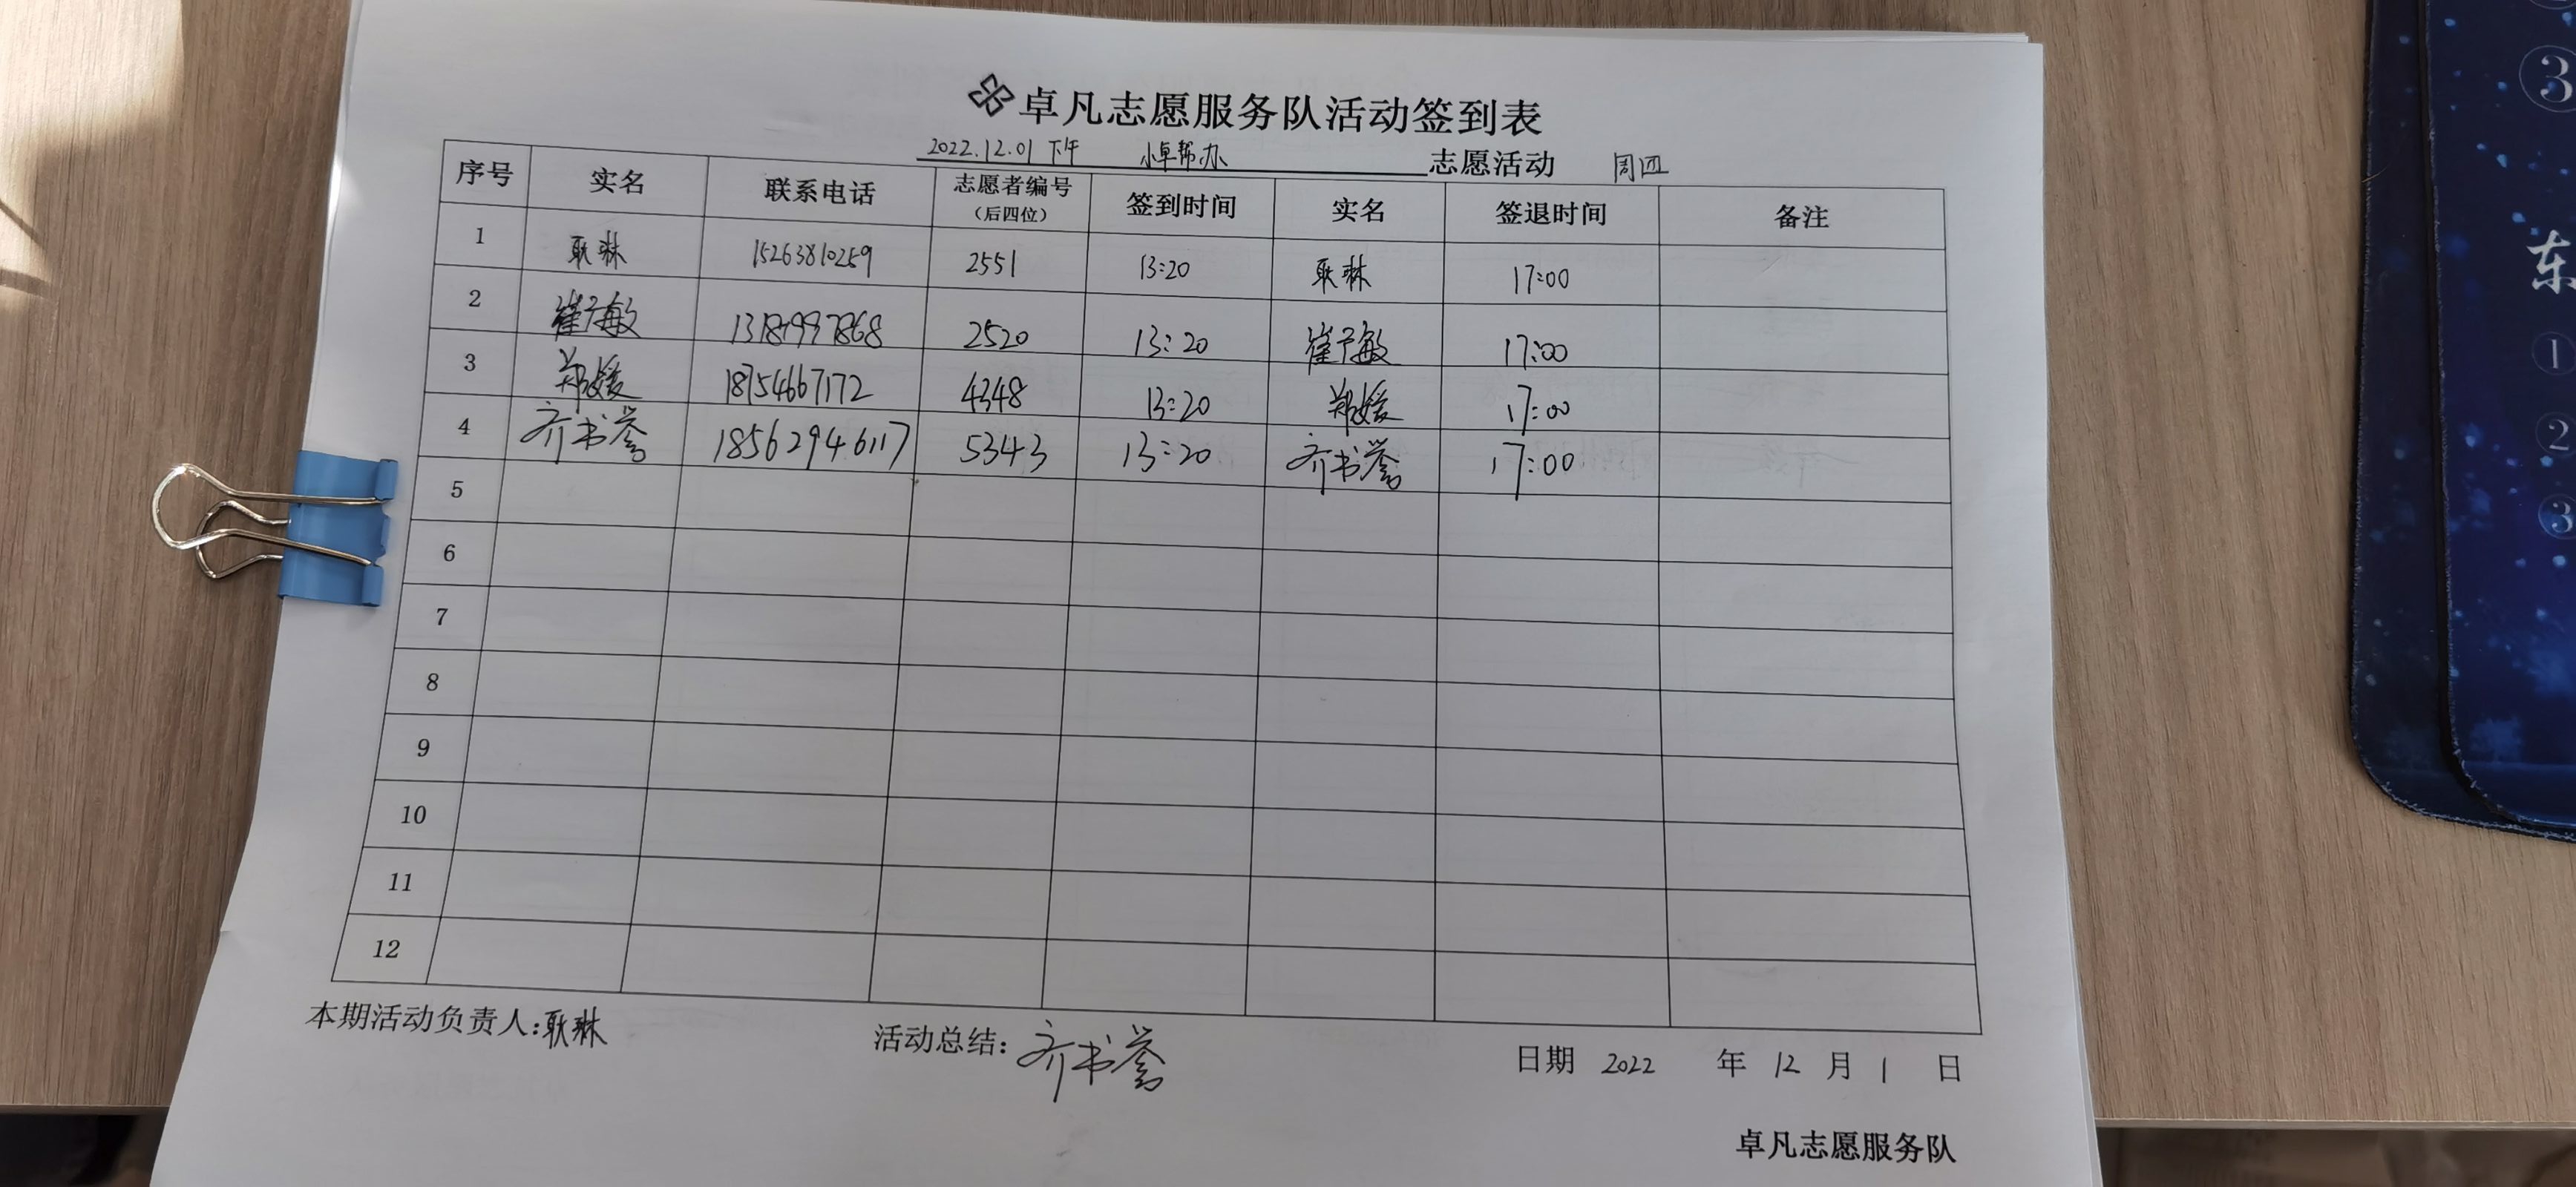 卓凡志愿服务队活动签到表
2022.12.01 下午 小卓帮办 志愿活动 周四
序号 实名 联系电话 志愿者编号（后四位） 签到时间 实名 签退时间 备注
1 耿琳 15263810259 2551 13:20 耿琳 17:00
2 崔广敏 2520 13:20 崔广敏 17:00
3 郑媛 18754667172 4348 13:20 郑媛 17:00
4 齐书誉 18562946117 5343 13:20 齐书誉 17:00
5
6
7
8
9
10
11
12
本期活动负责人:耿琳 活动总结: 齐书誉 日期 2022 年 12 月 1 日
卓凡志愿服务队
③
东
①
②
③